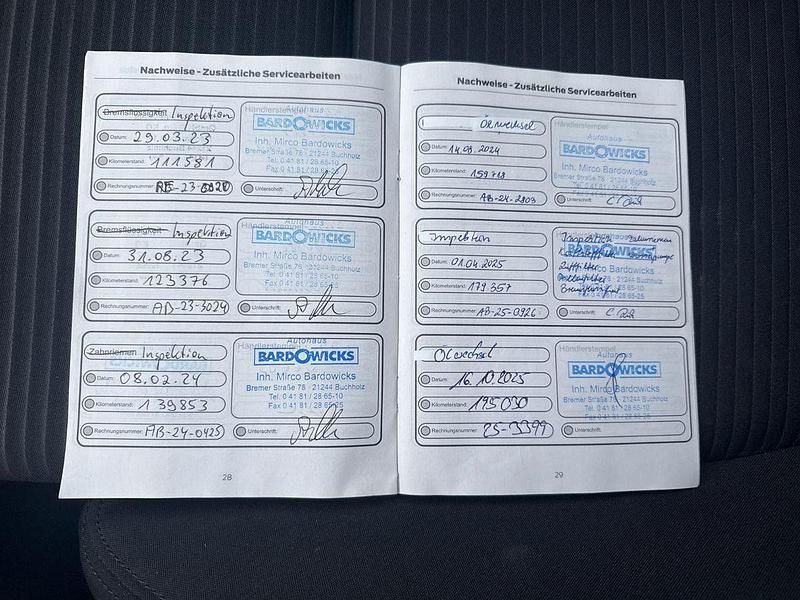 Nachweise - Zusätzliche Servicearbeiten
Bremsflüssigkeit Inspektion
Datum: 29.03.23
Kilometerstand: 111581
Rechnungsnummer:
Händlerstempel
Autohaus
BARDOWICKS
Inh. Mirco Bardowicks
Bremer Straße 78 · 21244 Buchholz
Tel. 0 41 81 / 28 65-10
Fax 0 41 81 / 28 65-25
Unterschrift:
Bremsflüssigkeit Inspektion
Datum: 31.08.23
Kilometerstand: 123376
Rechnungsnummer: AB-23-3024
Händlerstempel
Autohaus
BARDOWICKS
Inh. Mirco Bardowicks
Bremer Straße 78 · 21244 Buchholz
Tel. 0 41 81 / 28 65-10
Fax 0 41 81 / 28 65-25
Unterschrift:
Zahnriemen Inspektion
Datum: 08.02.24
Kilometerstand: 139853
Rechnungsnummer: AB-24-0425
Händlerstempel
Autohaus
BARDOWICKS
Inh. Mirco Bardowicks
Bremer Straße 78 · 21244 Buchholz
Tel. 0 41 81 / 28 65-10
Fax 0 41 81 / 28 65-25
Unterschrift:
28
Nachweise - Zusätzliche Servicearbeiten
Ölwechsel
Datum: 14.08.2024
Kilometerstand: 159718
Rechnungsnummer: AB-24-2803
Händlerstempel
Autohaus
BARDOWICKS
Inh. Mirco Bardowicks
Bremer Straße 78 · 21244 Buchholz
Tel. 0 41 81 / 28 65-10
Fax 0 41 81 / 28 65-25
Unterschrift:
Inspektion
Datum: 01.04.2025
Kilometerstand: 179.357
Rechnungsnummer: AB-25-0926
Inspektion Zahnriemen
BARDOWICKS
Luftfilter
Mirco Bardowicks
Pollenfilter
Unterschrift:
Ölwechsel
Datum: 16.10.2025
Kilometerstand: 195030
Rechnungsnummer: 25-3399
Händlerstempel
Autohaus
BARDOWICKS
Inh. Mirco Bardowicks
Bremer Straße 78 · 21244 Buchholz
Tel. 0 41 81 / 28 65-10
Fax 0 41 81 / 28 65-25
Unterschrift:
29